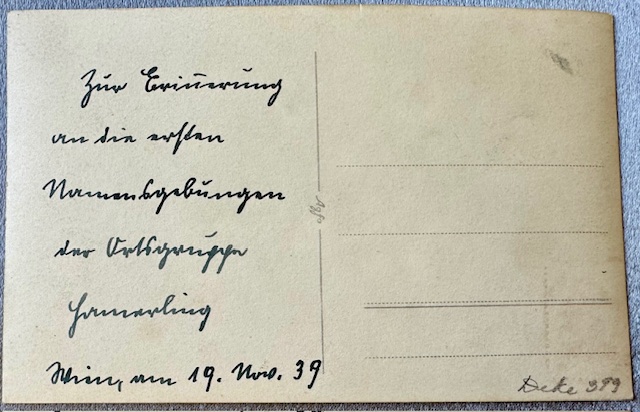 Zur Erinnerung
an die ersten
Namensgebungen
der Ortsgruppe
Hamerling
Wien, am 19. Nov. 39